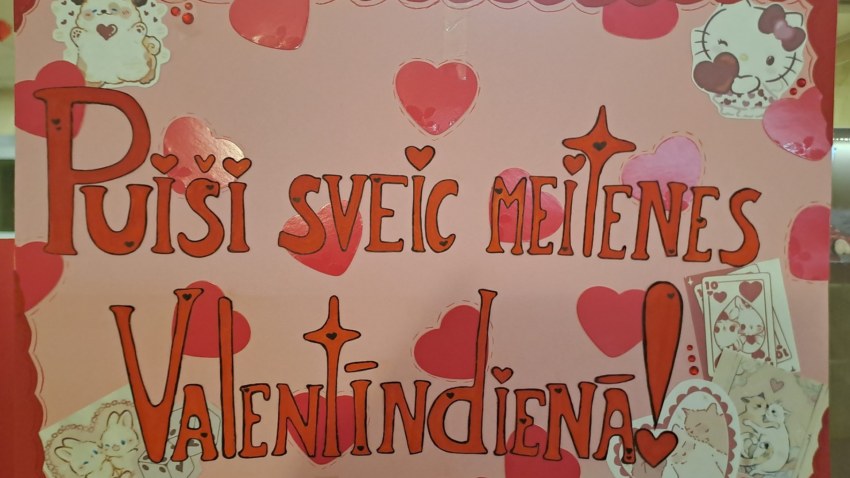 Puiši sveic meitenes
Valentīndienā!
10